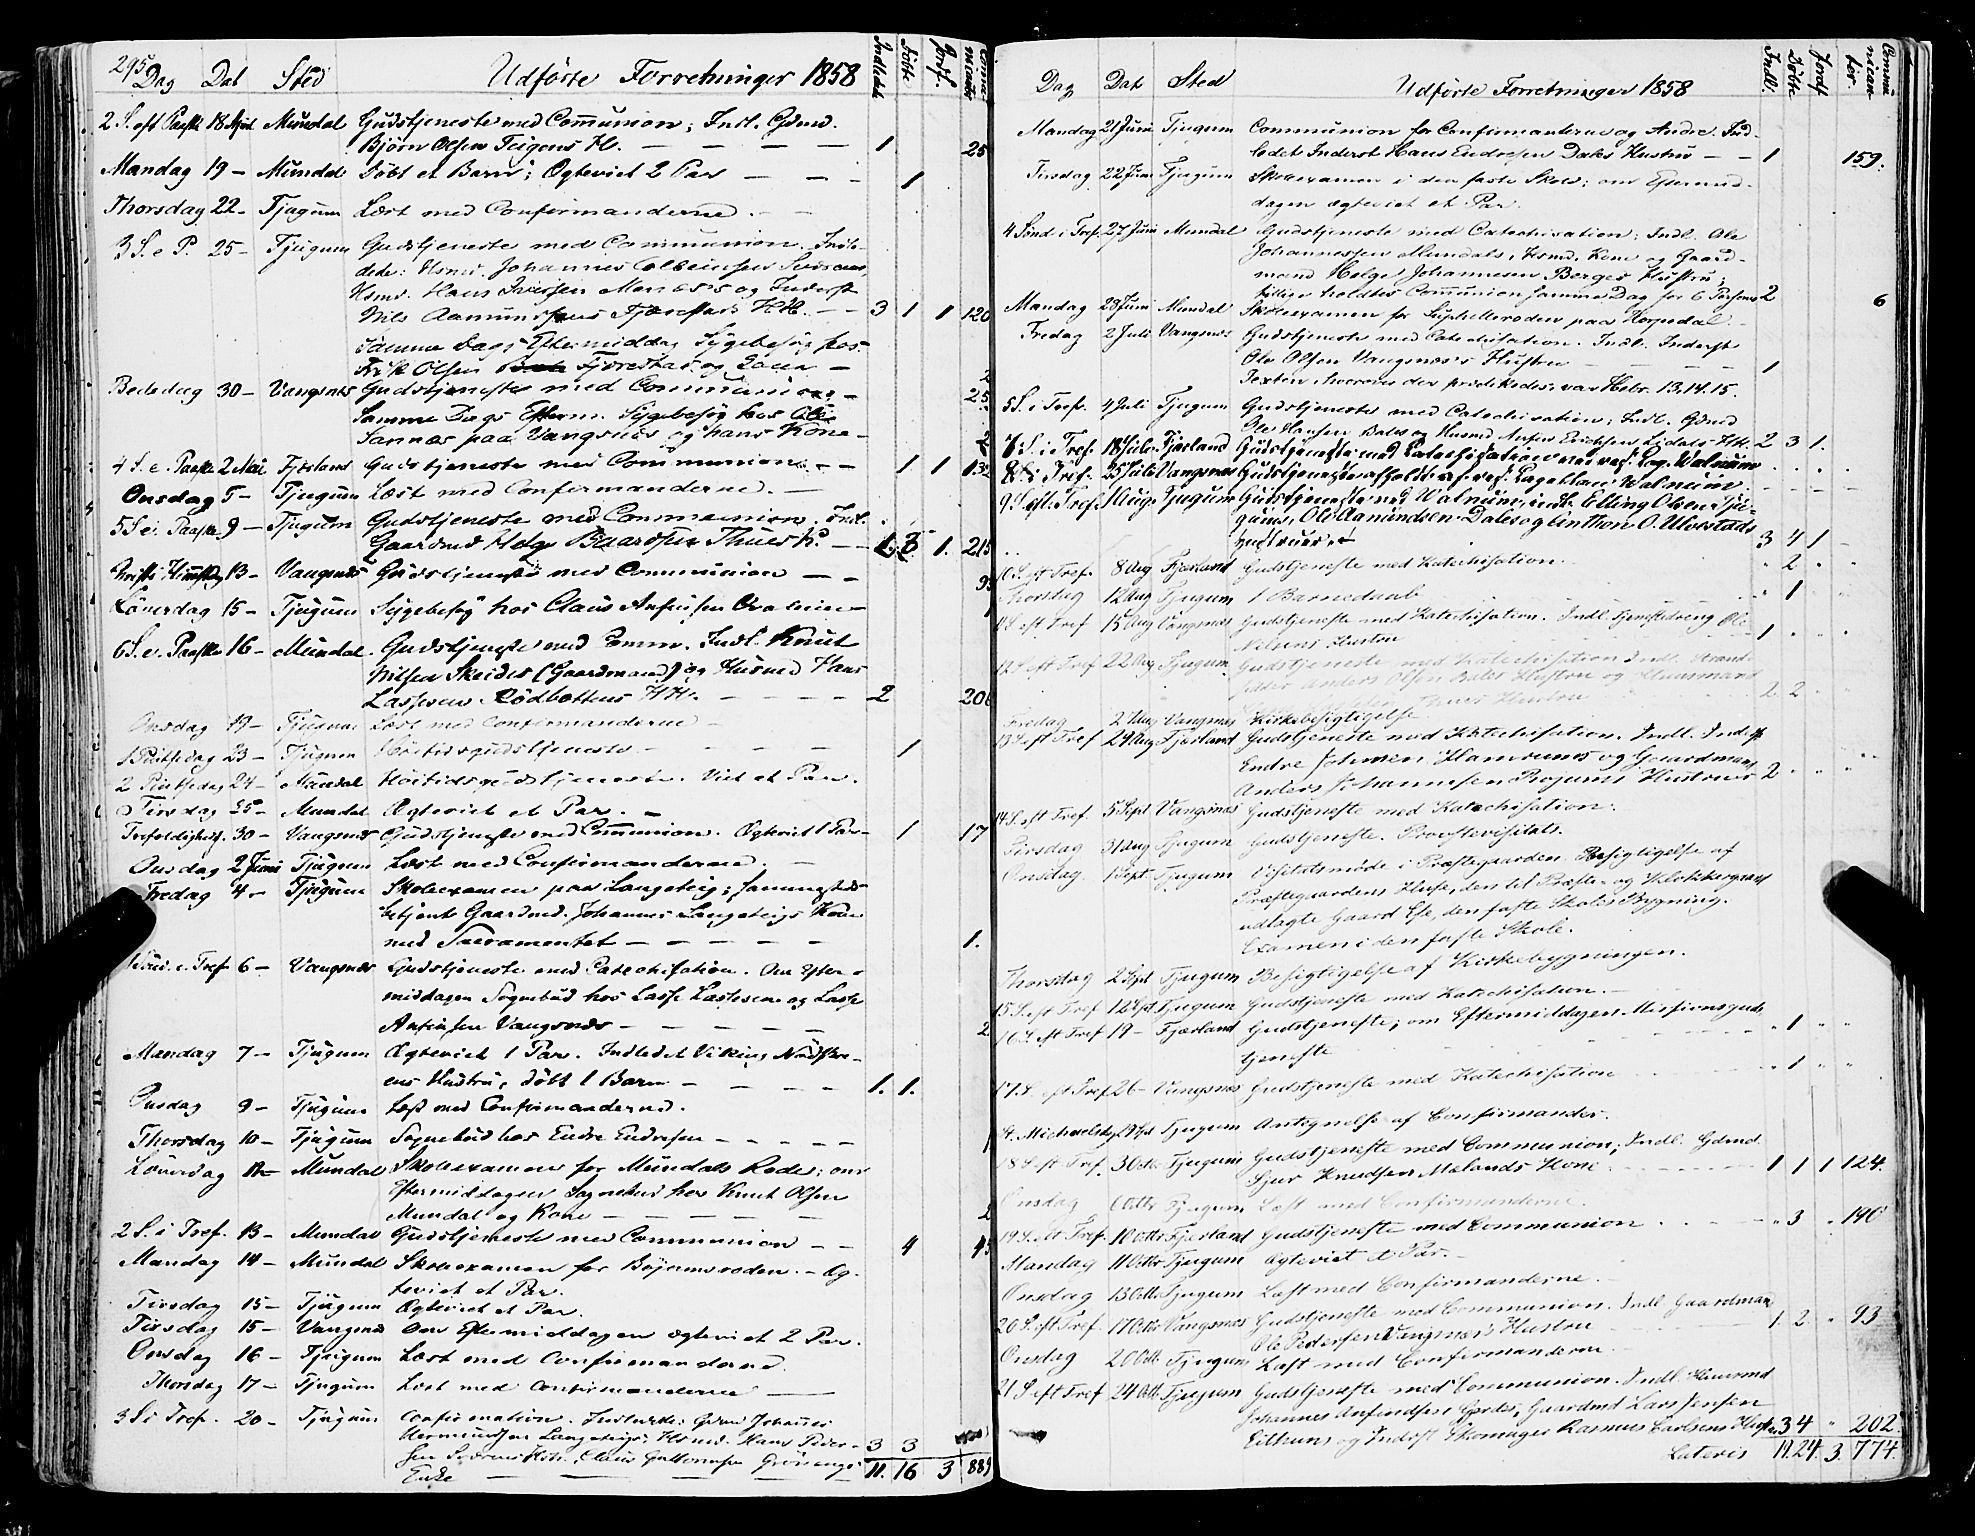 295
Dag Dat Sted Udførte Forretninger 1858 Indledet Døbte Jordf.
2 S. eft Paaske 18 April Mundal Gudstjeneste med Communion; Indl. Gdmd.
Bjørn Olsen Teigens H. — — — — 1 25
Mandag 19 — Mundal Døbt et Barn; Ægteviet 2 Par — — — 1
Thorsdag 22 — Tjugum Læst med Confirmanderne. —
3 S. e P. 25 — Tjugum Gudstjeneste med Communion. Indle-
dede: Hsmd. Johannes
Hsmd. Hans Iversen Menes's og Inderst
Nils Aamundsens Tjærestad's HH. — — 3 1 1 120
Samme Dags Eftermiddag Sygebesøg hos
Erik Olsen Fjærestad og Kona — 2
Bededag 30 — Vangsnæs Gudstjeneste med Communion — 25
Samme Dags Efterm. Sygebesøg hos Ole
Sannæs paa Vangsnæs og hans Kone — 2
4 S. e. Paaske 2 Mai Fjærland Gudstjeneste med Communion. — — 1 1 132
Onsdag 5 — Tjugum Læst med Confirmanderne. —
5 S e. Paaske 9 — Tjugum Gudstjeneste med Communion. Indl.
Gaardmd Helge Baardsen Thues H. — — 1. 3 1. 215
Christi Himmelfg 13 — Vangsnæs Gudstjeneste med Communion — —
Løverdag 15 — Tjugum Sygebesøg hos Claus Anfinsen
6 S. e. Paaske 16 — Mundal. Gudstjeneste med Comm. Indl. Knut
Nilsen Skeides (Gaardmand) og Husmd Hans
Lassesens Rødbottens HH. — — — — 2 206
Onsdag 19 — Tjugum Læst med Confirmanderne —
1 Pintsedag 23 — Tjugum Høitidsgudstjeneste — — — — 1
2 Pintsedag 24 — Mundal Høitidsgudstjeneste. Viet et Par.
Tirsdag 25 — Mundal Ægteviet et Par. —
Trefoldighedsf. 30 — Vangsnæs Gudstjeneste med Communion. Ægteviet 1 Par — 1 17
Onsdag 2 Juni Tjugum Læst med Confirmanderne. —
Fredag 4 — Tjugum Skoleexamen paa Langeteig; sammesteds
betjent Gaardmd. Johannes Langeteigs Kone
med Sacramentet — — — — — 1.
1 Sønd. e. Tref 6 — Vangsnæs Gudstjeneste med Catechisation. Om Efter-
middagen Sognebud hos Lasse Lassesen og Lasse
Anfinsen Vangsnæs — — — — 2
Mandag 7 — Tjugum Ægteviet 1 Par. Indledet Viking
ens Hustru, døbt 1 Barn — — — — 1. 1.
Onsdag 9 — Tjugum Læst med Confirmanderne.
Thorsdag 10 — Tjugum Sognebud hos Endre Endresen — — — — — 1
Løverdag 12 — Mundal Skoleexamen for Mundals Rode; om
Eftermiddagen Sognebud hos Knut Olsen
Mundal og Kone — — — — — 2
2 S. i Tref. 13 — Mundal Gudstjeneste med Communion — — 4 45
Mandag 14 — Mundal Skoleexamen for Bøjumsroden. — Æg-
teviet et Par.
Tirsdag 15 — Tjugum Ægteviet et Par.
Tirsdag 15 — Vangsnæs Om Eftermiddagen ægteviet 2 Par.
Onsdag 16 — Tjugum Læst med Confirmanderne.
Thorsdag 17 — Tjugum Læst med Confirmanderne —
3 S i Tref. 20 — Tjugum Confirmation. Indledede: Gdmd Johannes
Hermundsen Langeteigs, Hsmd. Hans Peder-
sen
Enke — — — — 3 3
11. 16 3 889
Dag Dat Sted Udførte Forretninger 1858 Indl. Døbte Jordf Communicanter.
Mandag 21 Juni Tjugum Communion for Confirmanterne og Andre. Ind-
ledet Inderst Hans Endresen Dales Hustru — — 1 159.
Tirsdag 22 Juni Tjugum Skoleexamen i den faste Skole; om Eftermid-
dagen ægteviet et Par.
4 Sønd i Tref. 27 Juni Mundal Gudstjeneste med Catechisation; Indl. Ole
Johannessen Mundals, Hsmd. Kone og Gaard-
mand Helge Johannesen Berges Hustru;
tillige holdtes Communion samme Dag for 6 Personer 2 6
Mandag 28 Juni Mundal Skoleexamen for Suphelleroden paa Horpedal. —
Fredag 2 Juli Vangsnæs Gudstjeneste med Catechisation. Indl. Inderst
Ole Olsen Vangsnæs's Hustru — — — — — 1
Texten, hvorover der prædikedes, var Hebr. 13. 14. 15.
5 S. i Tref. 4 Juli Tjugum Gudstjeneste med Catechisation; Indl. Gdmd
Ole Hansen Bales og Husmd Anfin Eriksen Lidals HH. 2 3 1.
7 S. i Tref. 18 Julii Fjærland Gudstjeneste med Catechisation ved resf. Cap. Walnum
8 S i Tref. 25 Juli Vangsnæs Gudstjeneste afholdt af resf. Capellan Walnum.
9 S. eft. Tref. 1 Aug. Tjugum Gudstjeneste ved Walnum, indl. Elling Olsen Tju-
gums, Ole Aamundsen Dales og Anthon O. Ulvestads
Hustruer. 3 4 1 —
10 S. eft Tref. 8 Aug Fjærland Gudstjeneste med Katechisation. 2
Thorsdag 12 Aug Tjugum 1 Barnedaab 1
11 S. eft Tref 15 Aug Vangsnæs Gudstjeneste med Katechisation. Indl. Tjenestedreng Ole
Nilsens Hustru 1
12 S. eft Tref 22 Aug Tjugum Gudstjeneste med Katechisation Indl. Strand-
sidder Anders Olsen Bales Hustru og Huusmand
Hustru 2 2
Fredag 27 Aug Vangsnæs Kirkebesigtigelse
13 S. eft Tref 29 Aug Fjærland Gudstjeneste med Katechisation. Indl. Inderst
Endre Johnsen Hamrums og Gaardmand
Anders Johannesen Bojums Hustruer 2
14 S. eft Tref. 5 Sept Vangsnæs Gudstjeneste med Katechisation.
Tirsdag 31 Aug Tjugum Gudstjeneste. Provstevisitats.
Onsdag 1 Sept Tjugum Visitatsmøde i Præstegaarden. Besigtigelse af
Præstegaardens Huse, den til Præste- og Klokkergaard
udlagte Gaard Ese, den faste Skoles Bygning.
Examen i den faste Skole.
Thorsdag 2 Sept Tjugum Besigtigelse af Kirkebygningen.
15 S. eft Tref 12 Sept Tjugum Gudstjeneste med Katechisation. —
16 S. eft Tref 19 — Fjærland Gudstjeneste; om Eftermiddagen Missionsguds-
tjeneste 1
17 S. eft Tref 26 — Vangsnæs Gudstjeneste med Katechisation 1
St. Michaelsdag 29 Sept Tjugum Antegnelse af Confirmander.
18 S. eft Tref. 3 Octbr Tjugum Gudstjeneste med Communion; Indl. Gdmd.
Sjur Knudsen Mælands Kone 1 1 1 124.
Onsdag 6 Octbr Tjugum Læst med Confirmanderne.
19 S. eft Tref. 10 Octbr Fjærland Gudstjeneste med Communion 3 140
Mandag 11 Octbr Tjugum Ægteviet et Par. —
Onsdag 13 Octbr Tjugum Læst med Confirmanderne. —
20 S. eft Tref. 17 Octbr Vangsnæs Gudstjeneste med Communion. Indl Gaardmand
Ole Pedersen Vangsnæs's Hustru 1. 2. 93
Onsdag 20 Octb. Tjugum Læst med Confirmanderne —
21 S. eft Tref 24 Octb Tjugum Gudstjeneste med Communion. Indl. Huusmd
Johannes Anfindsen Gjerdes, Gaardmd Lars Jensen
Eithuns og Inderst Skomager Rasmus Carlsens Hustr. 3 4 202.
Lateris 11. 24. 3. 774.